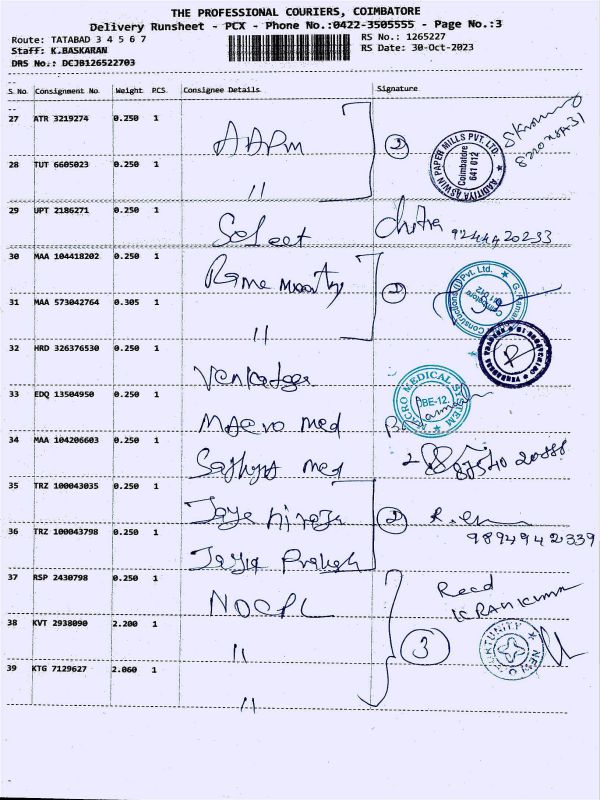 THE PROFESSIONAL COURIERS, COIMBATORE
Delivery Runsheet - PCX - Phone No.:0422-3505555 - Page No.:3
Route: TATABAD 3 4 5 6 7
RS No.: 1265227
Staff: K.BASKARAN
RS Date: 30-Oct-2023
DRS No.: DCJB126522703
S. No. Consignment No. Weight PCS Consignee Details Signature
27 ATR 3219274 0.250 1 AAPM
2
AADITYA ASWIN PAPER MILLS PVT. LTD.
Coimbatore
641 012
28 TUT 6605023 0.250 1 "
29 UPT 2186271 0.250 1 Select Chitra 9244420233
30 MAA 104418202 0.250 1
2
31 MAA 573042764 0.305 1 "
32 HRD 326376530 0.250 1
33 EDQ 13504950 0.250 1 Macro med
MACRO MEDICAL SYSTEM
CBE-12.
34 MAA 104206603 0.250 1
35 TRZ 100043035 0.250 1
2
36 TRZ 100043798 0.250 1 Jaya Prakash 9894942339
37 RSP 2430798 0.250 1 NOCPL Recd
38 KVT 2938090 2.200 1 "
3
39 KTG 7129627 2.060 1 "